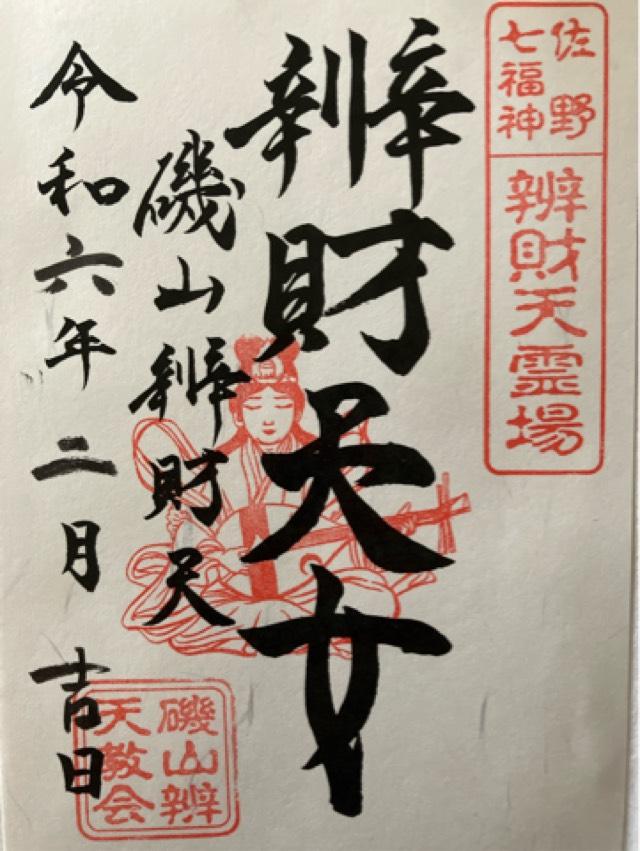 佐野
七福神
辨財天霊場
辨財天女
磯山辨財天
令和六年二月吉日
磯山辨
天教会